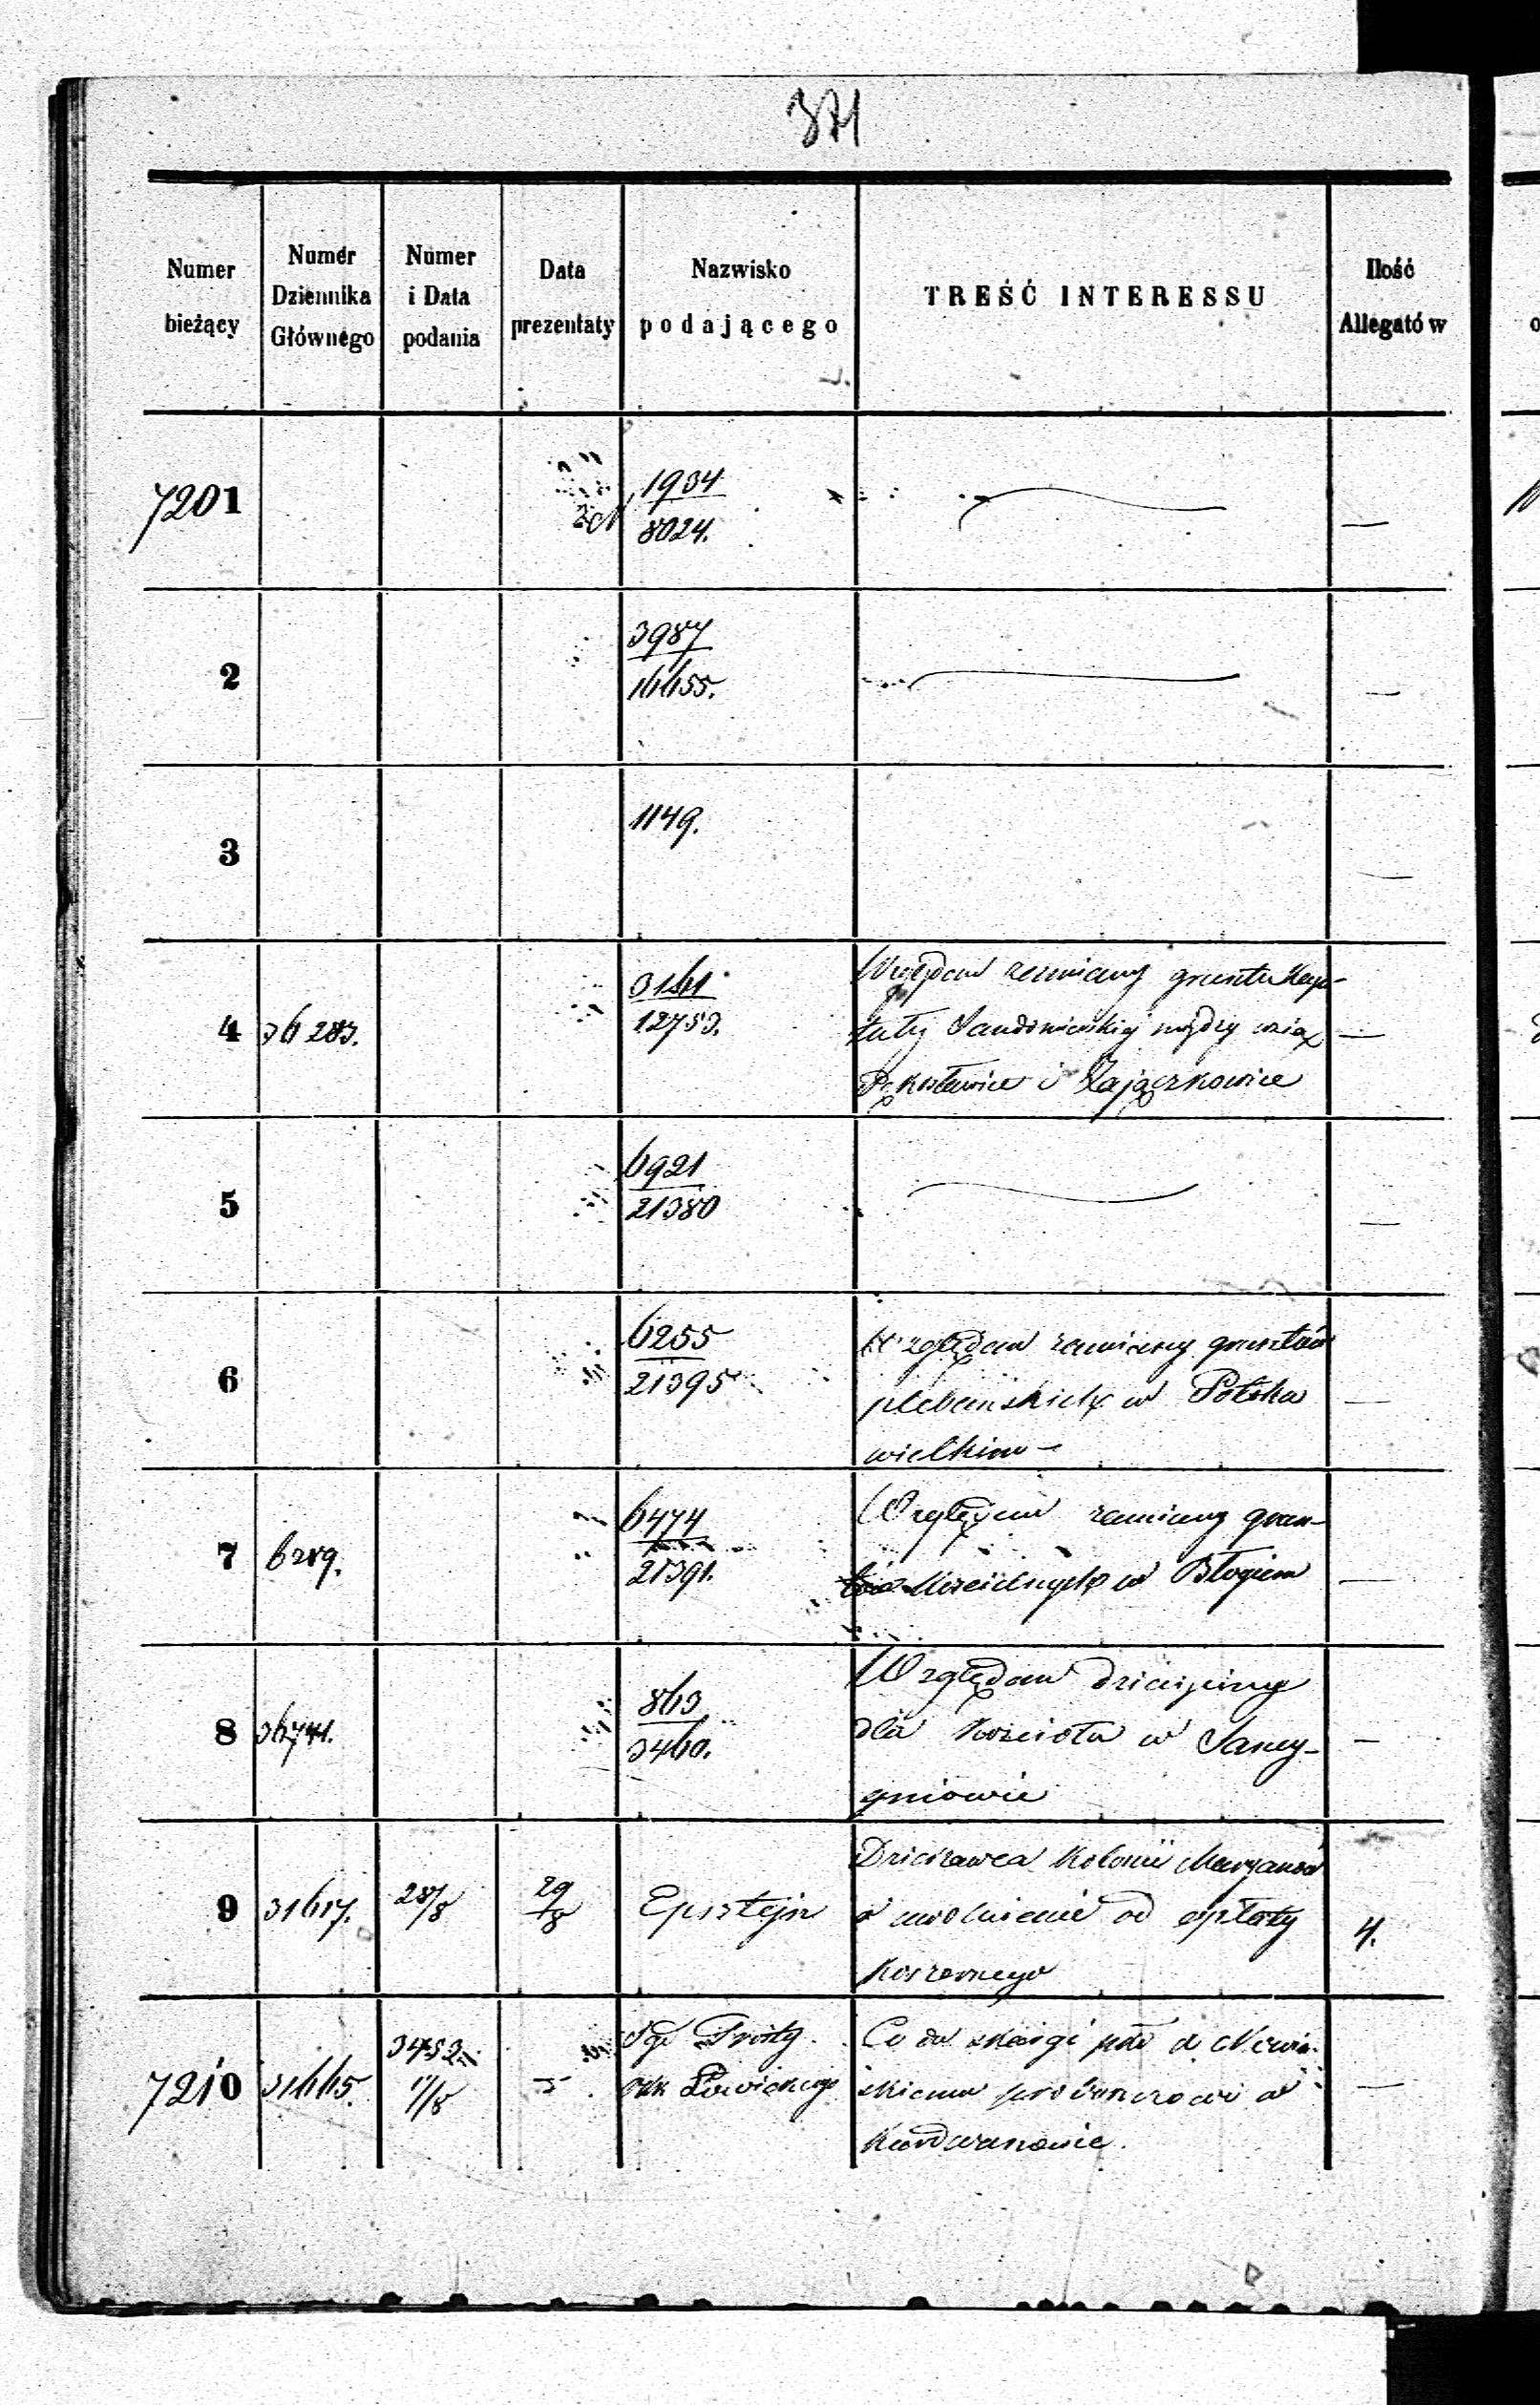 371
Numer bieżący
Numer Dziennika Głównego
Numer i Data podania
Data prezentaty
Nazwisko podającego
TREŚĆ INTERESSU
Ilość Allegatów
7201
1934
8024.
—
2
3987
16655.
—
3
1149.
—
4
36283.
3161
12753.
Względem zamiany gruntu Kapi-
tuły Sandomierskiej między wsią
Pękosławice i Zajączkowice
—
5
6921
21380
—
6
6255
21395
Względem zamiany gruntów
plebańskich w Potoku
wielkim —
—
7
6289.
6474
21391.
Względem zamiany grun-
tów kościelnych w Błogiem
—
8
36741.
863
3460.
Względem dziesięciny
dla kościoła w Sancy-
gniowie
—
9
31617.
28/8
29/8
Epsztejn
Dzierżawca Kolonii Maryanów
o uwolnienie od opłaty
koszernego
4.
7210
31665.
3452
11/8
Prosty
Co do skargi pko
skiemu proboszczowi w
—